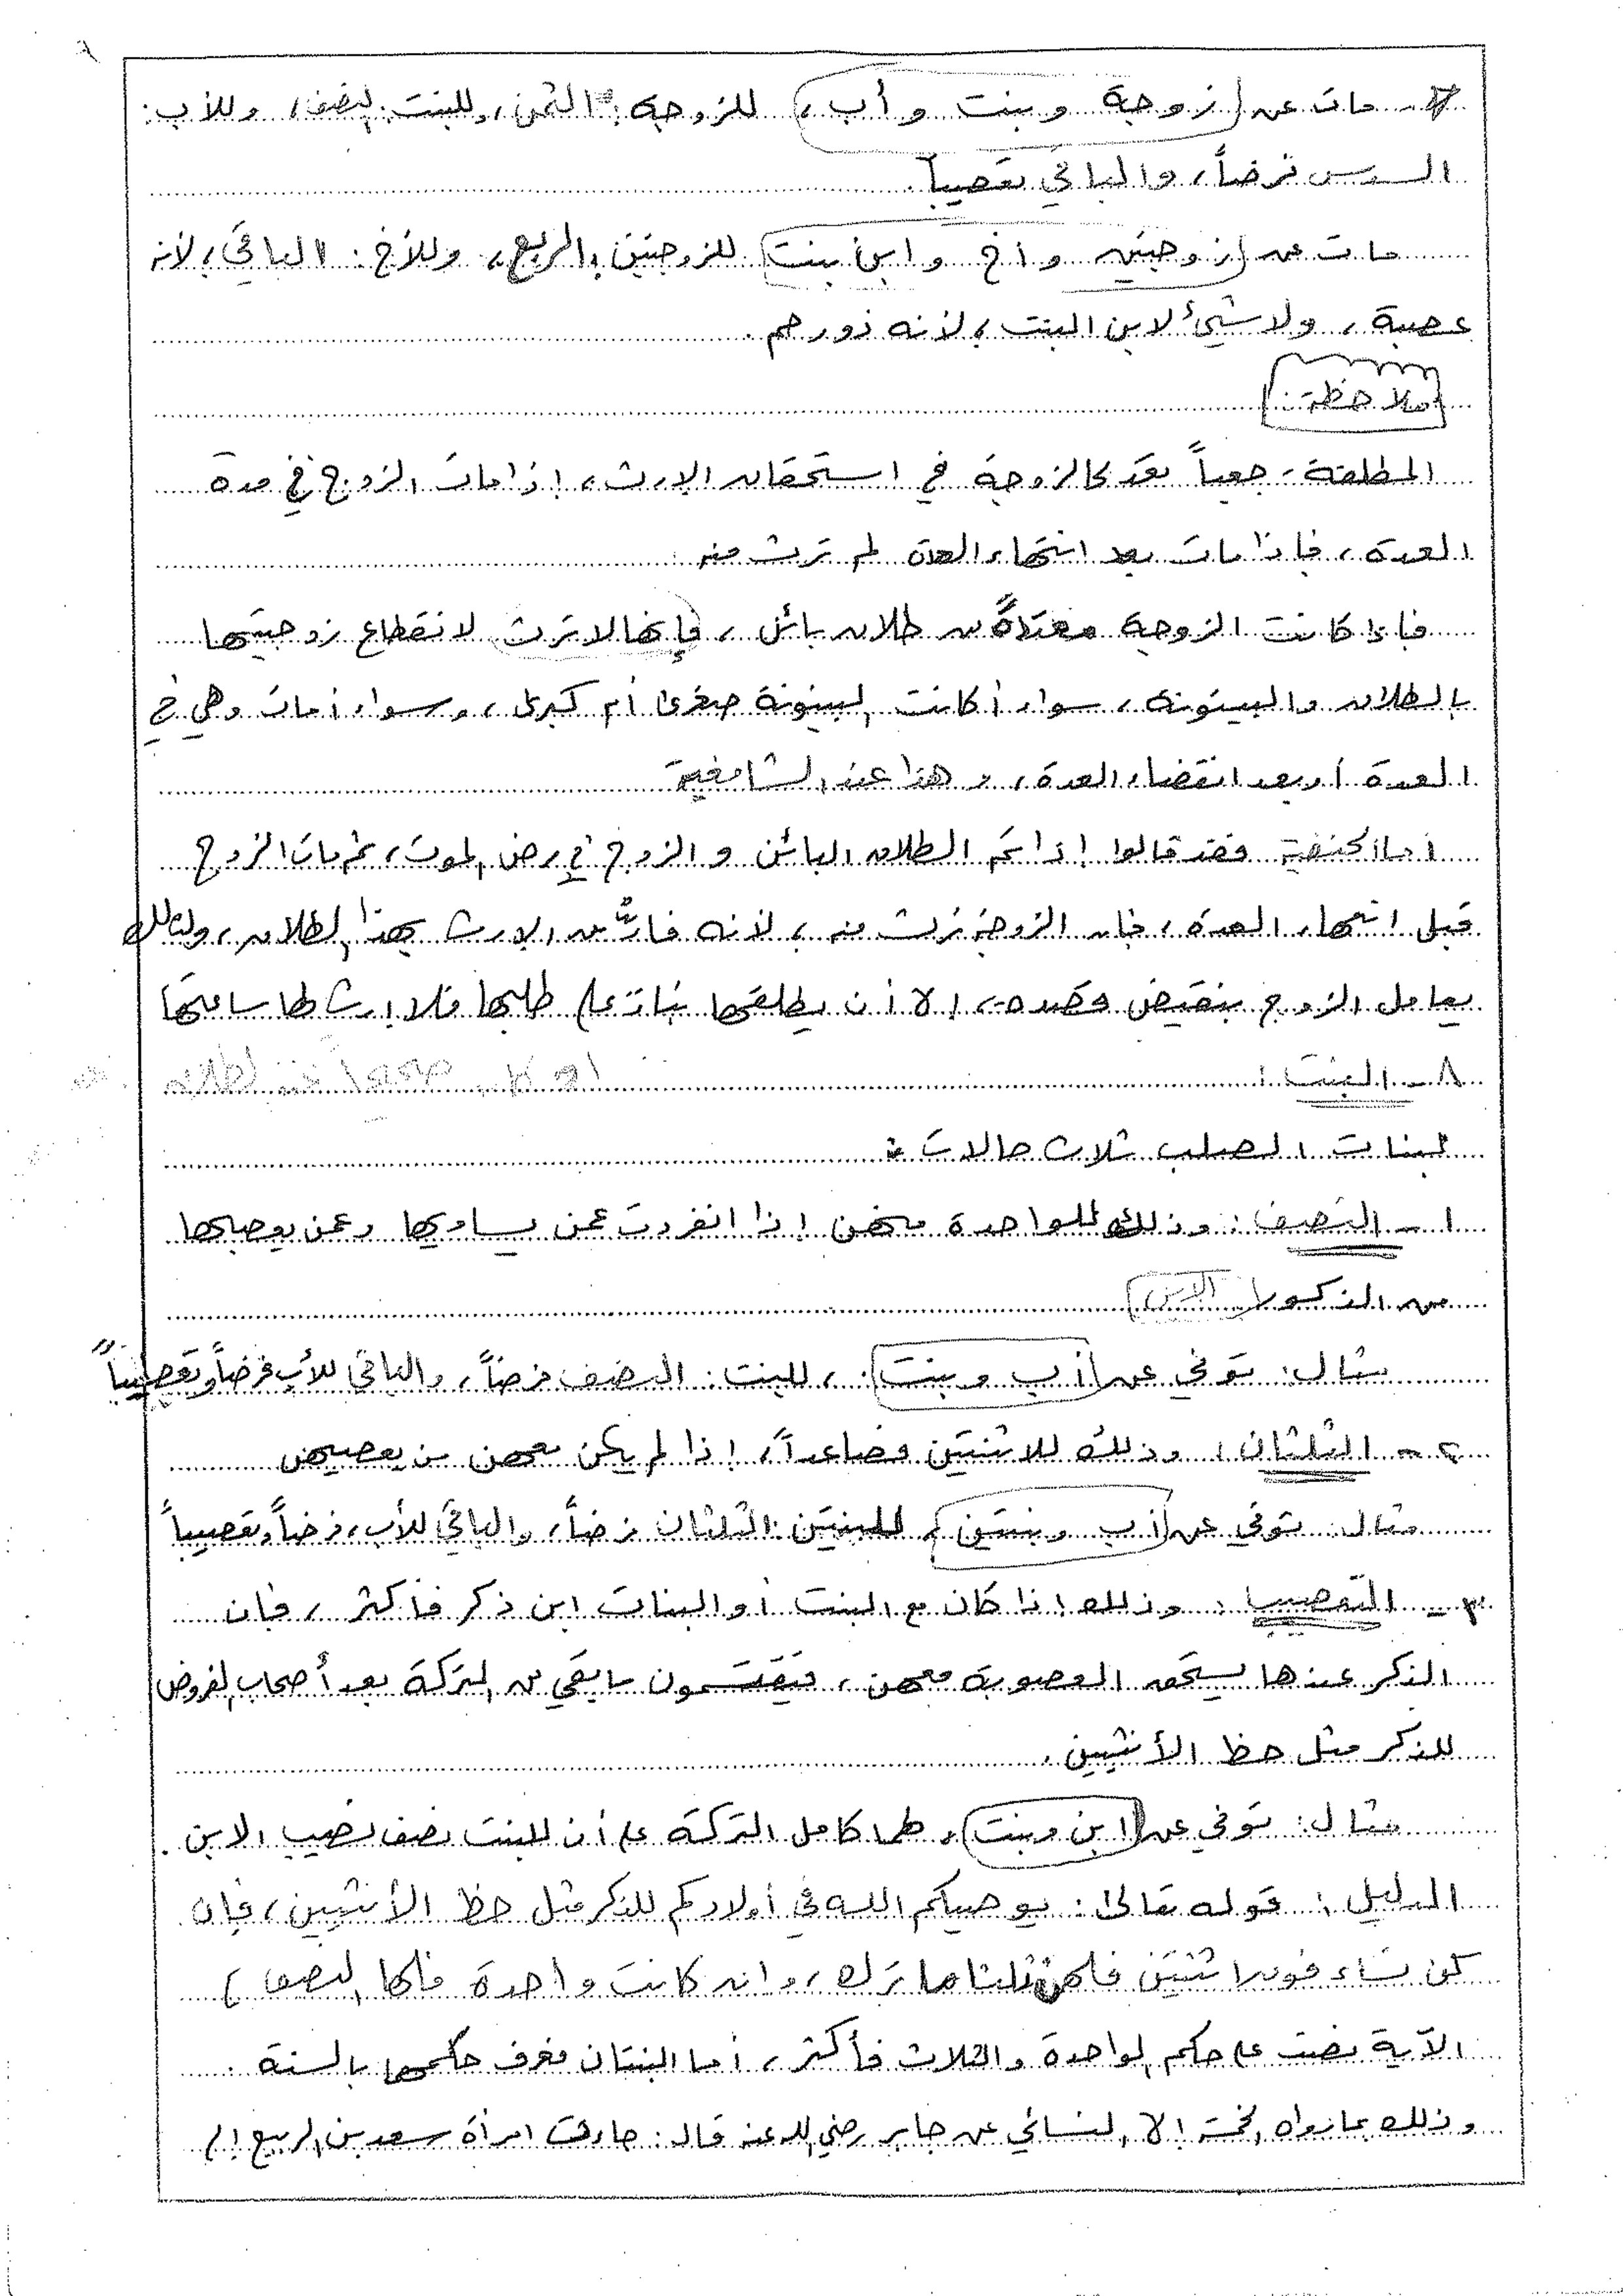 مات عن (زوجة وبنت وأب)، للزوجة: الثمن، وللبنت: النصف، وللأب:
السدس فرضاً، والباقي تعصيباً.
مات عن (زوجتين وأخ وابن بنت) للزوجتين: الربع، وللأخ: الباقي، لأنه
عصبة، ولا شيئ لابن البنت، لأنه ذو رحم.
ملاحظة:
المطلقة رجعياً تعد كالزوجة في استحقاق الإرث، إذا مات الزوج في مدة
العدة، فإذا مات بعد انتهاء العدة لم ترث منه.
فإذا كانت الزوجة معتدةً من طلاق بائن، فإنها لا ترث لانقطاع زوجيتها
بالطلاق والبينونة، سواء أكانت البينونة صغرى أم كبرى، وسواء أمات وهي في
العدة أو بعد انقضاء العدة، وهذا عند الشافعية
أما الحنفية فقد قالوا إذا تم الطلاق البائن والزوج في مرض الموت، ثم مات الزوج
قبل انتهاء العدة، فإن الزوجة ترث منه، لأنه فارٌّ من الإرث بهذا الطلاق، ولذلك
يعامل الزوج بنقيض قصده، إلا أن يطلقها بناءً على طلبها فلا إرث لها ساعتها
٨ - البنت: أو كان صحيحاً عند طلاقه
لبنات الصلب ثلاث حالات:
١ - النصف: وذلك للواحدة منهن إذا انفردت عمن يساويها وعمن يعصبها
من الذكور (الابن)
مثال: توفي عن (أب وبنت)، للبنت: النصف فرضاً، والباقي للأب فرضاً وتعصيباً
٢ - الثلثان: وذلك للاثنتين فصاعداً، إذا لم يكن معهن من يعصبهن
مثال: توفي عن (أب وبنتين)، للبنتين: الثلثان فرضاً، والباقي للأب، فرضاً وتعصيباً
٣ - التعصيب: وذلك إذا كان مع البنت أو البنات ابن ذكر فأكثر، فإن
الذكر عندها يستحق العصوبة معهن، فيقتسمون ما بقي من التركة بعد أصحاب الفروض
للذكر مثل حظ الأنثيين.
مثال: توفي عن (ابن وبنت)، لهما كامل التركة على أن للبنت نصف نصيب الابن.
الدليل: قوله تعالى: يوصيكم الله في أولادكم للذكر مثل حظ الأنثيين، فإن
كن نساء فوق اثنتين فلهن ثلثا ما ترك، وإن كانت واحدة فلها النصف)
الآية نصت على حكم الواحدة والثلاث فأكثر، أما البنتان فعرف حكمهما بالسنة.
وذلك بما رواه الخمسة إلا النسائي عن جابر رضي الله عنه قال: جاءت امرأة سعد بن الربيع إلى